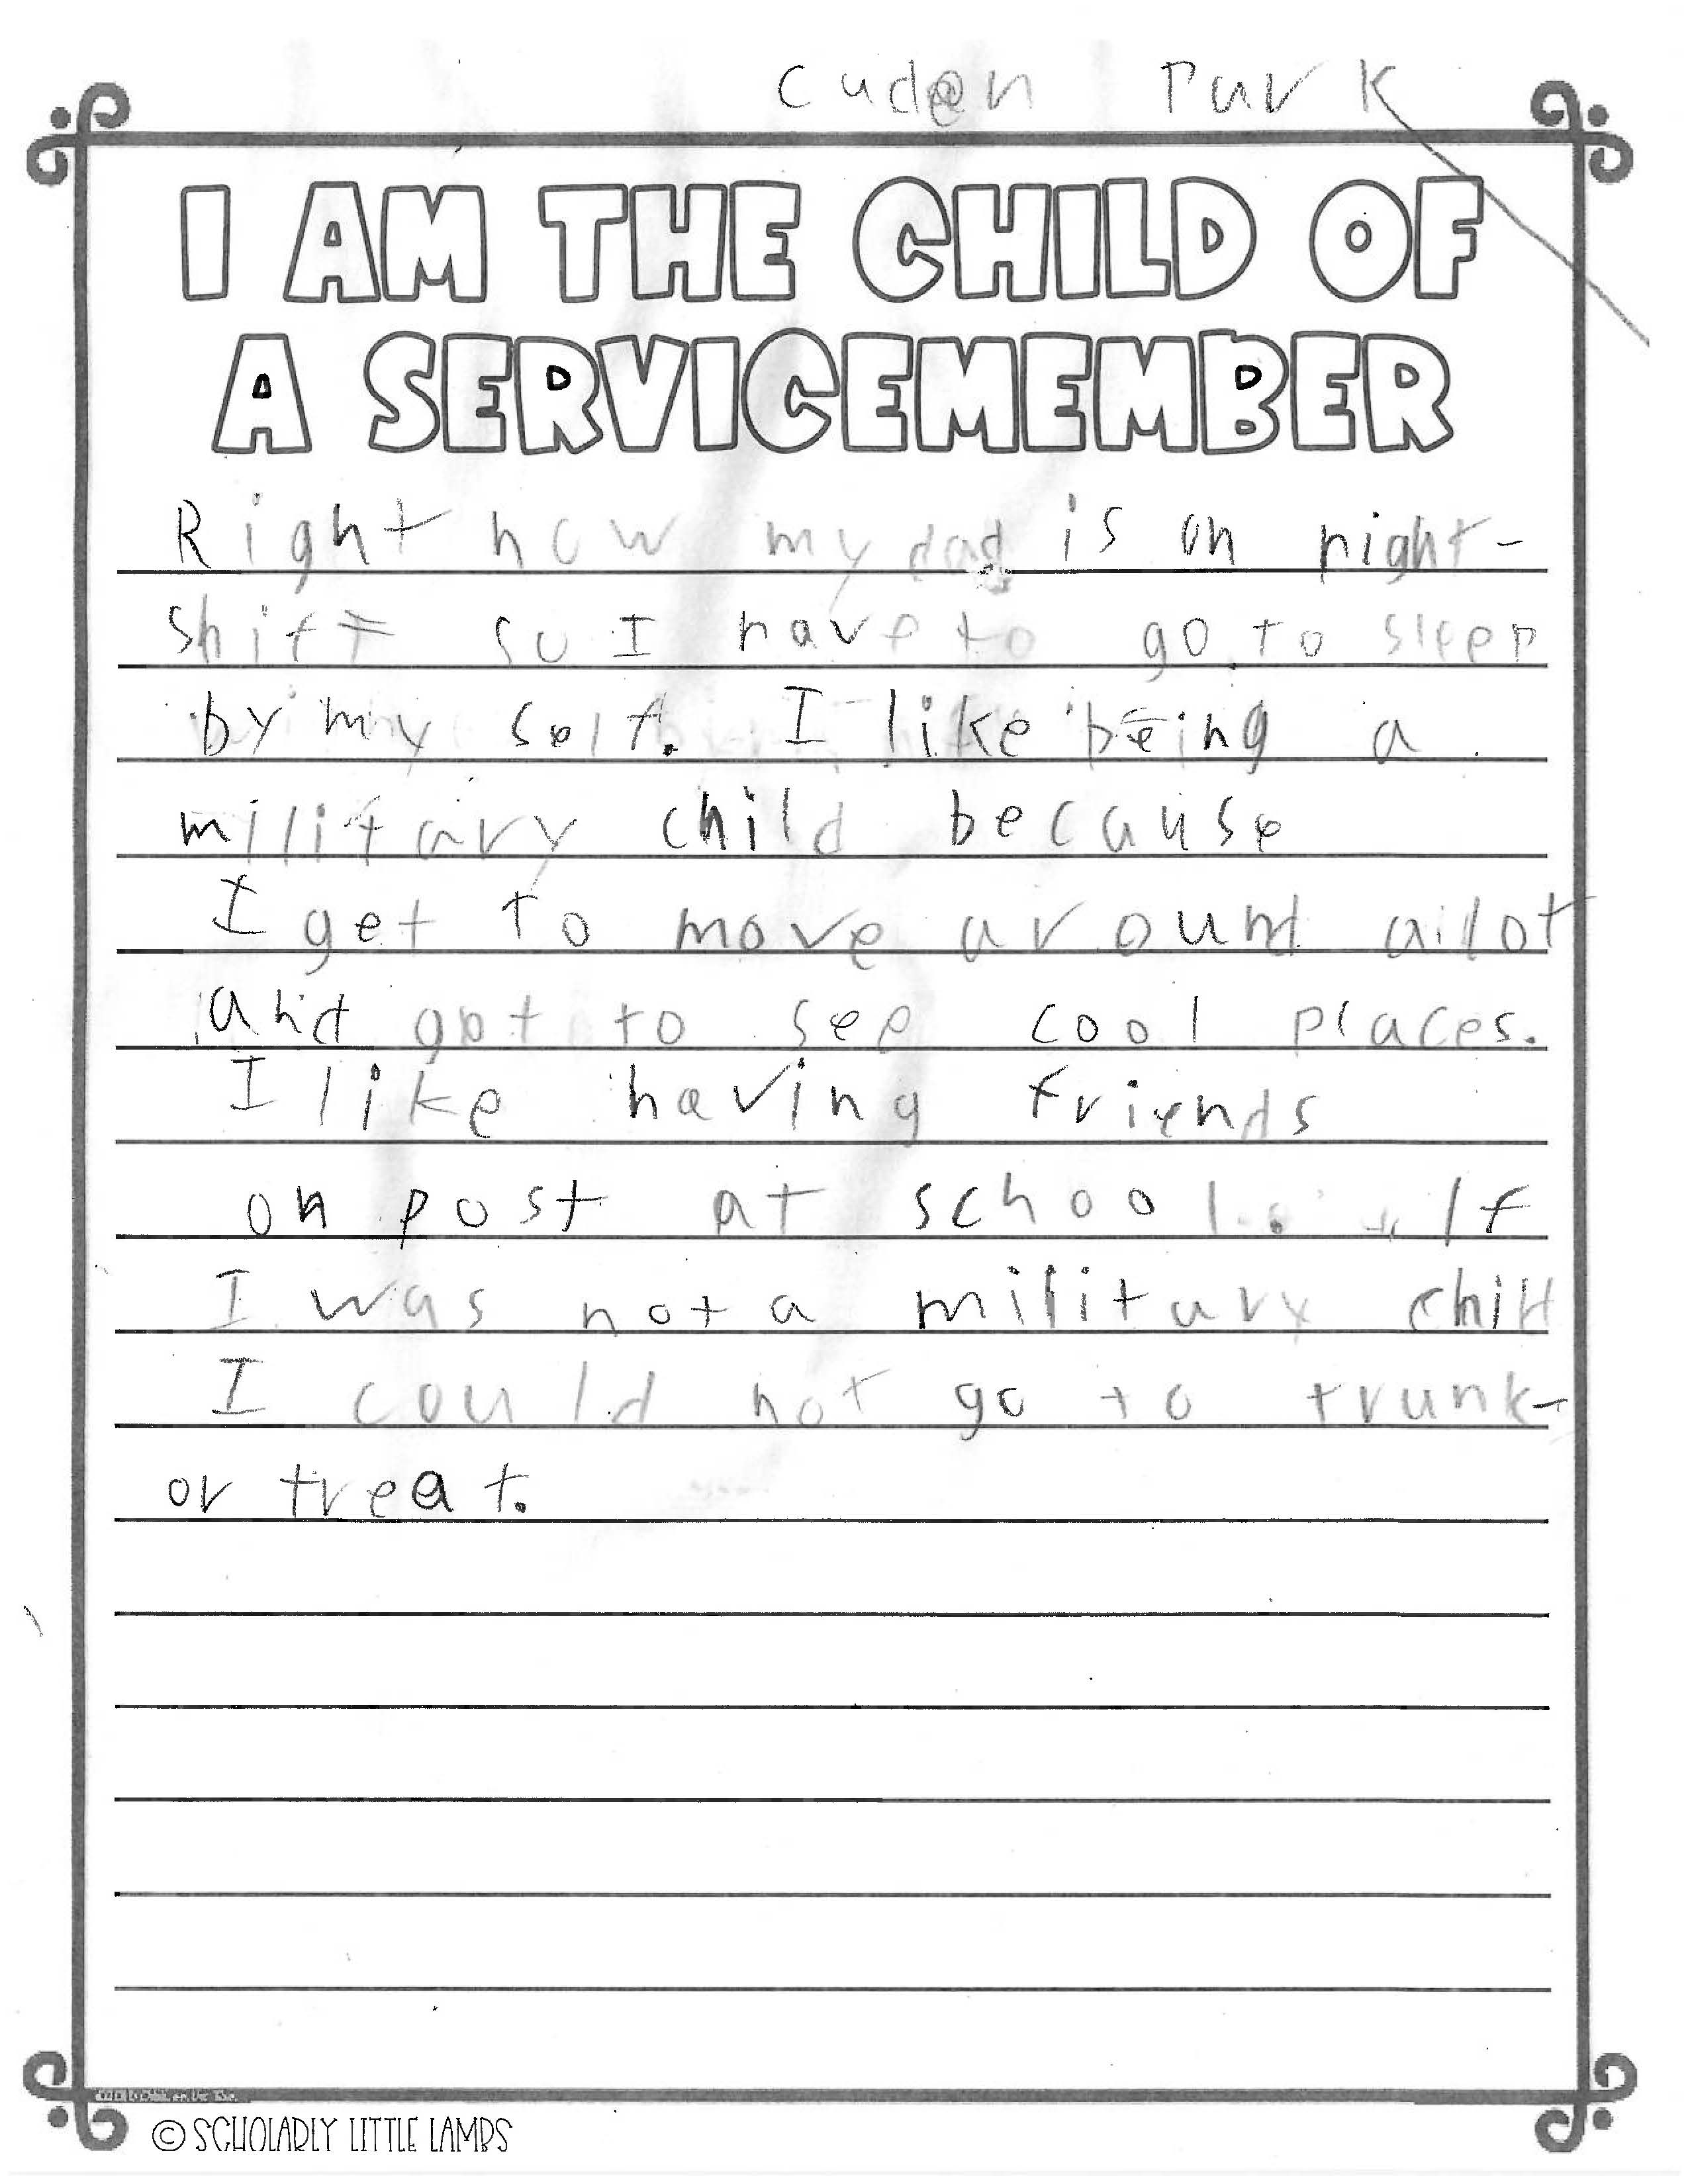 Caden Park
I AM THE CHILD OF
A SERVICEMEMBER
Right now my dad is on night-
shift so I have to go to sleep
by my self. I like being a
military child because
I get to move around alot
and get to see cool places.
I like having friends
on post at school. If
I was not a military child
I could not go to trunk-
or treat.
© SCHOLARLY LITTLE LAMBS